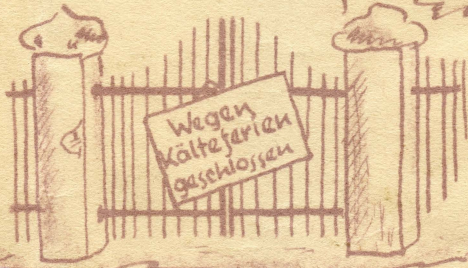 Wegen
Kälteferien
geschlossen